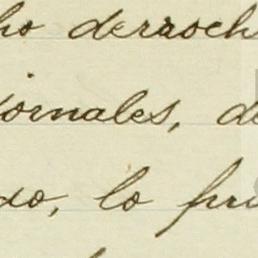 ho derroch
jornales, d
do, lo pri